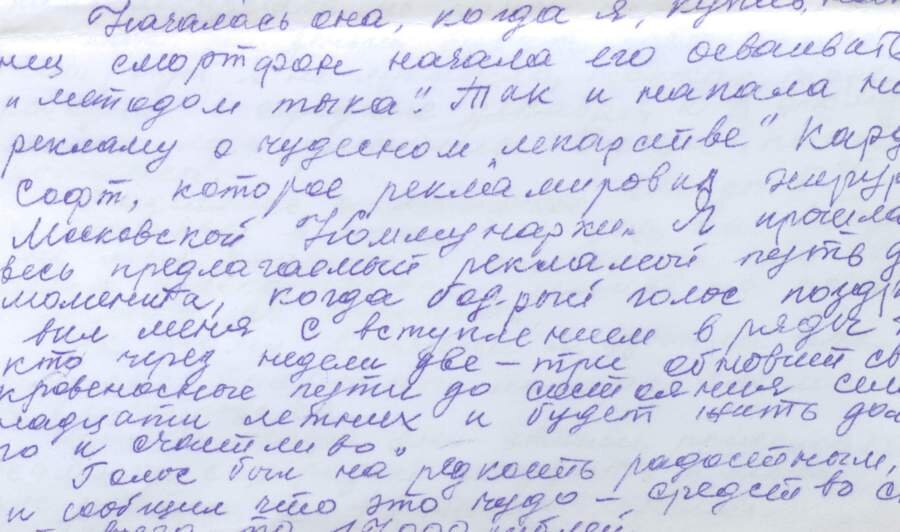 Началась она, когда я, купив,
нец смортфон начала его осваивать
и методом тыка". Так и напала на
рекламу о чудесном „лекарстве" Кард
Софт, которое рекламировал хирур
Московской Коммунарки. Я прошла
весь предлагаемый рекламой путь д
момента, когда бодрый голос поздр
вил меня с вступлением в ряды
кто через недели две – три обновит св
кровеносные пути до состояния сем
надцати летних и будет жить дол
го и счастливо.
Голос был на редкость радостным,
и сообщил что это чудо – средство с
17000 рублей